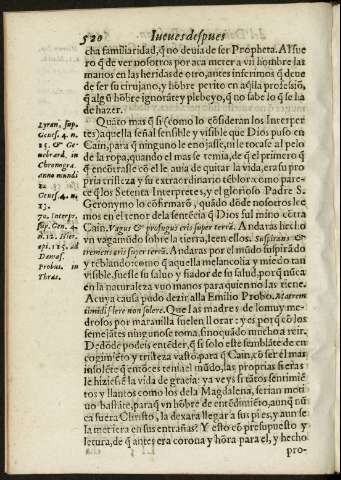 520 Iueues despues
cha familiaridad, q̃ no deuia de ser Propheta. Al fue
ro q̃ de ver nosotros por aca meter a vn hombre las
manos en las heridas de otro, antes inferimos q̃ deue
de ser su cirujano, y hõbre perito en aq̃lla professiõ,
q̃ algũ hõbre ignorãte y plebeyo, q̃ no sabe lo q̃ se ha
de hazer.
Quãto mas q̃ si (como lo cõsideran los Interpre
tes) aquella señal sensible y visible que Dios puso en
Cain, para q̃ ninguno le enojasse, ni le tocasse al pelo
de la ropa, quando el mas se temia, de q̃ el primero q̃
q̃ encõtrasse cõ el le auia de quitar la vida, era su pro
pria tristeza y su extraordinario tẽblor: como pare
ce q̃ los Setenta Interpretes, y el glorioso Padre S.
Geronymo lo confirmarõ, quãdo dõde nosotros lee
mos en el tenor dela sentẽcia q̃ Dios fulminò cõtra
Cain, Vagus & profugus eris super terrã. Andaràs hecho
vn vagamũdo sobre la tierra, leen ellos. Suspirans &
tremens eris super terrã. Andaras por el mũdo suspirãdo
y tẽblando: como q̃ aquella melancolia y miedo tan
visible, fuesse su saluo y fiador de su salud, por q̃ nũca
en la naturaleza vuo manos para quien no las tiene.
A cuya causa pudo dezir alla Emilio Probo. Matrem
timidi flere non solere. Que las madres de los muy me-
drosos por marauilla suelen llorar: y es porq̃ cõ los
semejãtes ninguno se toma, sino quãdo mucho a reir.
Dedõde podeis entẽder, q̃ si solo este semblãte de en
cogimiẽto y tristeza vastò, para q̃ Cain, cõ ser el mas
insolẽte q̃ entõces tenia el mũdo, las proprias fieras
le hiziessẽ la vida de gracia: ya veys si tãtos sentimiẽ
tos y llantos como los dela Magdalena, serian moti
uo bastãte, para q̃ vn hõbre de entẽdimiẽto, aunq̃ nũ
ca fuera Christo, la dexara llegar a sus pies, y aun se
la metiera en sus entrañas? Y esto cõ presupuesto y
letura, de q̃ antes era corona y hõra para el, y hecho
pro-
Lyran. sup.
Genes. 4. n.
15. & Ge-
nebrard. in
Chronogra.
anno mundi
Genes. 4. n.
13.
70. Interpr.
sup. Gen. 4.
n. 12. Hier.
epi. 125. ad
Damas.
Probus. in
Thras.